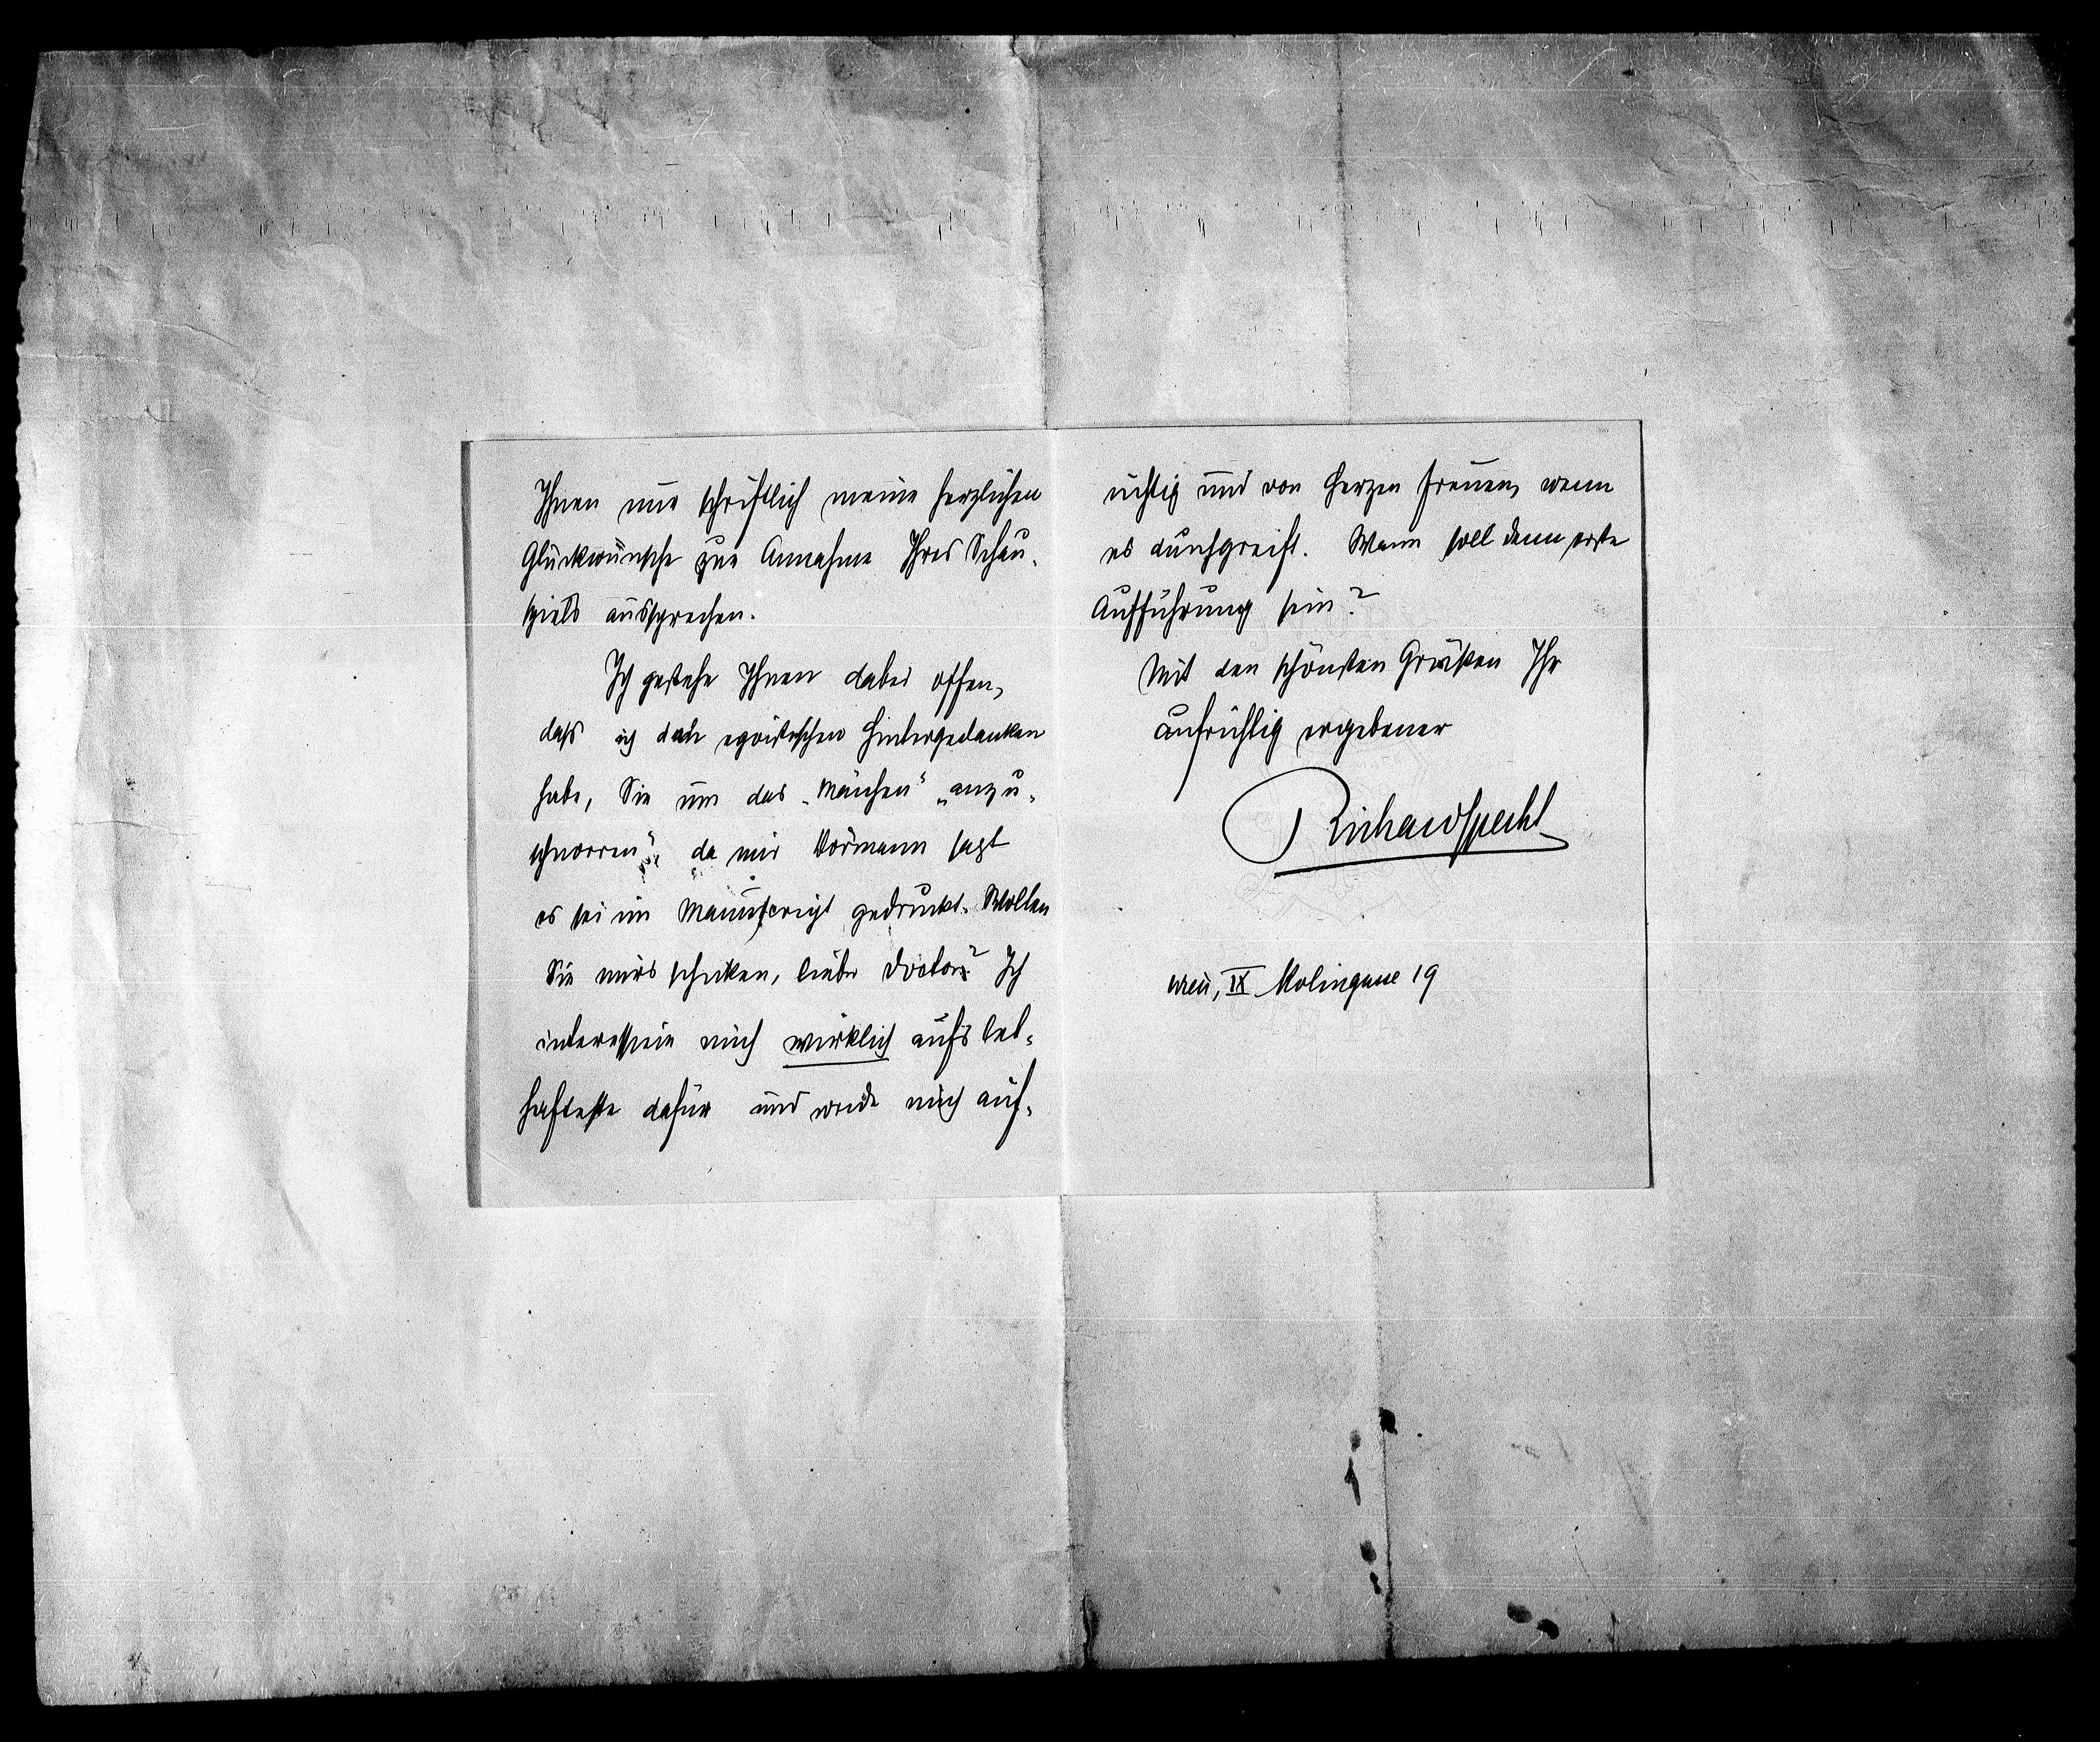 Ihnen nur schriftlich meine herzlichen
Glückwünsche zur Annahme Ihres Schau-
spiels aussprechen.
Ich gestehe Ihnen dabei offen,
daß ich den egoistischen Hintergedanken
habe, Sie um das „Märchen“ „anzu-
schnorren“, da mir Dörmann sagt
es sei im Manuscript gedruckt. Wollen
Sie mirs schicken, lieber Doctor? Ich
interessire mich wirklich aufs leb-
hafteste dafür und werde mich auf-
richtig und von Herzen freuen, wenn
es durchgreift. Wann soll denn erste
Aufführung sein?
Mit den schönsten Grüßen Ihr
aufrichtig ergebener
Richard Specht
Wien, IX 19